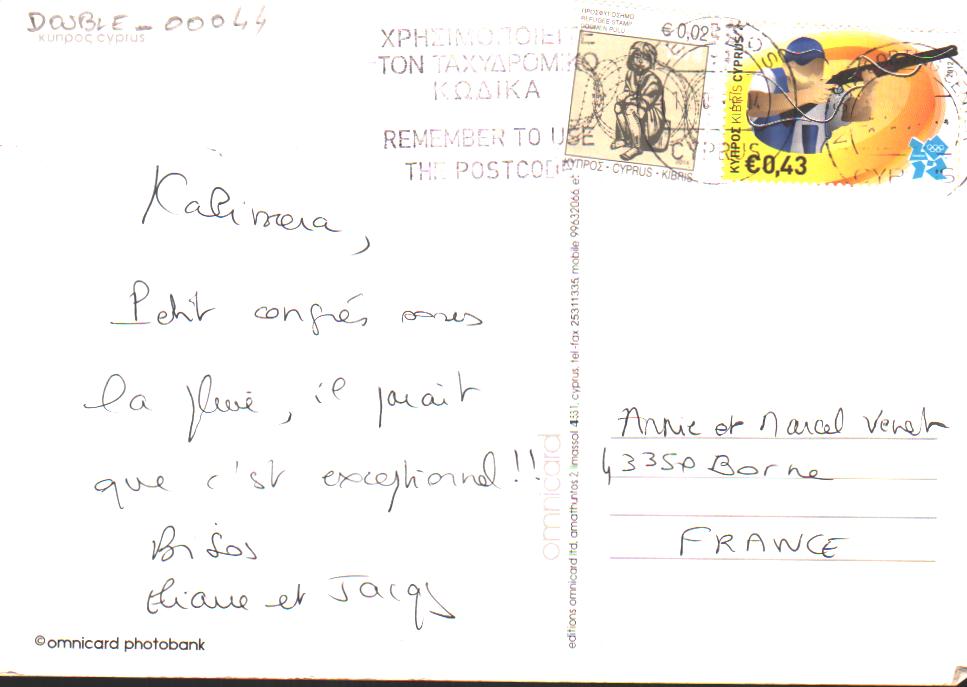 DOUBLE_00044
κυπρος cyprus
ΧΡΗΣΙΜΟΠΟΙΕΙ Ε
ΤΟΝ ΤΑΧΥΔΡΟΜΙΚΟ
ΚΩΔΙΚΑ
REMEMBER TO USE
THE POSTCODE
ΠΡΟΣΦΥΓΟΣΗΜΟ
REFUGEE STAMP
GÖÇMEN PULU
€0,02
ΚΥΠΡΟΣ - CYPRUS - KIBRIS
ΚΥΠΡΟΣ KIBRIS CYPRUS
2012
€0,43
CYPRUS
Kalimera,
Petit congrés sous
la pluie, il parait
que c'est exceptionnel !!
Bisos
Eliane et Jacqs
©omnicard photobank
omnicard
editions omnicard ltd, amathuntos 2, limassol 4531, cyprus, tel-fax 25311335, mobile 99632066 e:
Annie et Marcel Venet
43350 Borne
FRANCE